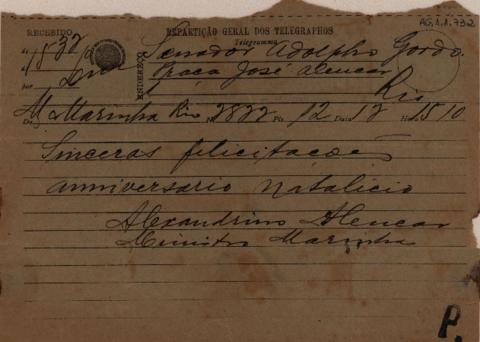 AG.1.1.732
RECEBIDO
REPARTIÇÃO GERAL DOS TELEGRAPHOS
Telegramma
1532
ENDEREÇO
Senador Adolpho Gordo
Praça José Alencar
Rio
M Marinha Rio N 2822 Pls 12 Data 12 H 1510
Sinceras felicitações
anniversario natalicio
Alexandrino Alencar
Ministro Marinha
P.